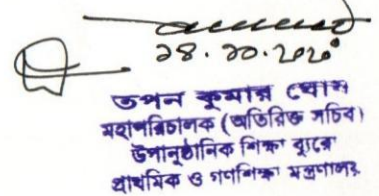 ২৪.১০.২০২০
তপন কুমার ঘোষ
মহাপরিচালক (অতিরিক্ত সচিব)
উপানুষ্ঠানিক শিক্ষা ব্যুরো
প্রাথমিক ও গণশিক্ষা মন্ত্রণালয়